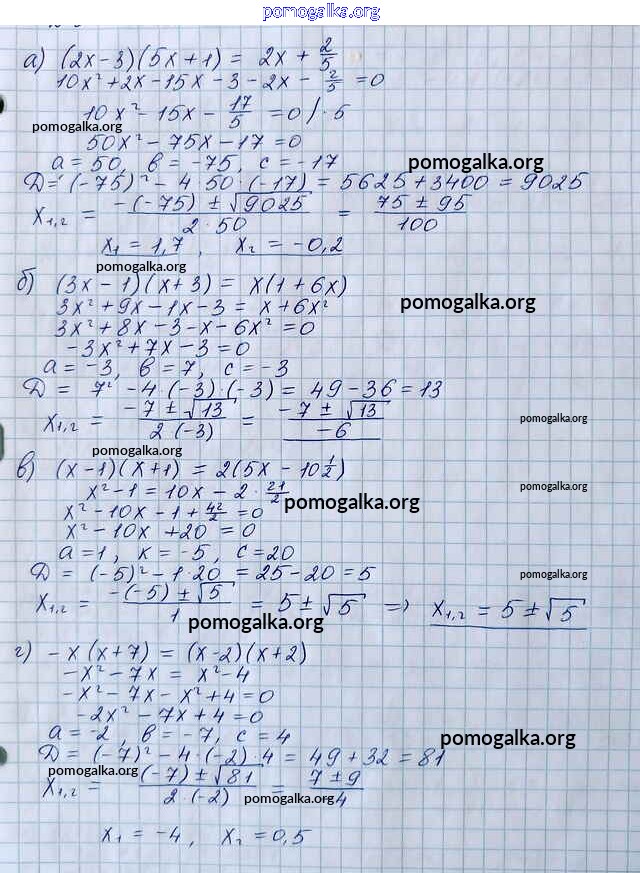 pomogalka.org
а) (2x - 3)(5x + 1) = 2x + 2/5
10x² + 2x - 15x - 3 - 2x - 2/5 = 0
10x² - 15x - 17/5 = 0 / · 5
pomogalka.org
50x² - 75x - 17 = 0
a = 50, в = -75, c = -17
pomogalka.org
D = (-75)² - 4 · 50 · (-17) = 5625 + 3400 = 9025
x₁,₂ = (-(-75) ± √9025)/(2 · 50) = (75 ± 95)/100
x₁ = 1,7 , x₂ = -0,2
pomogalka.org
б) (3x - 1)(x + 3) = x(1 + 6x)
3x² + 9x - 1x - 3 = x + 6x²
pomogalka.org
3x² + 8x - 3 - x - 6x² = 0
-3x² + 7x - 3 = 0
a = -3, в = 7, c = -3
D = 7² - 4 · (-3) · (-3) = 49 - 36 = 13
x₁,₂ = (-7 ± √13)/(2 · (-3)) = (-7 ± √13)/(-6)
pomogalka.org
pomogalka.org
в) (x - 1)(x + 1) = 2(5x - 10 1/2)
x² - 1 = 10x - 2 · 21/2
pomogalka.org
pomogalka.org
x² - 10x - 1 + 42/2 = 0
x² - 10x + 20 = 0
a = 1, к = -5, c = 20
D = (-5)² - 1 · 20 = 25 - 20 = 5
pomogalka.org
x₁,₂ = (-(-5) ± √5)/1 = 5 ± √5 => x₁,₂ = 5 ± √5
pomogalka.org
г) -x(x + 7) = (x - 2)(x + 2)
-x² - 7x = x² - 4
-x² - 7x - x² + 4 = 0
-2x² - 7x + 4 = 0
a = -2, в = -7, c = 4
pomogalka.org
D = (-7)² - 4 · (-2) · 4 = 49 + 32 = 81
pomogalka.org
x₁,₂ = -(-7) ± √81/(2 · (-2)) = (7 ± 9)/(-4)
pomogalka.org
x₁ = -4, x₂ = 0,5